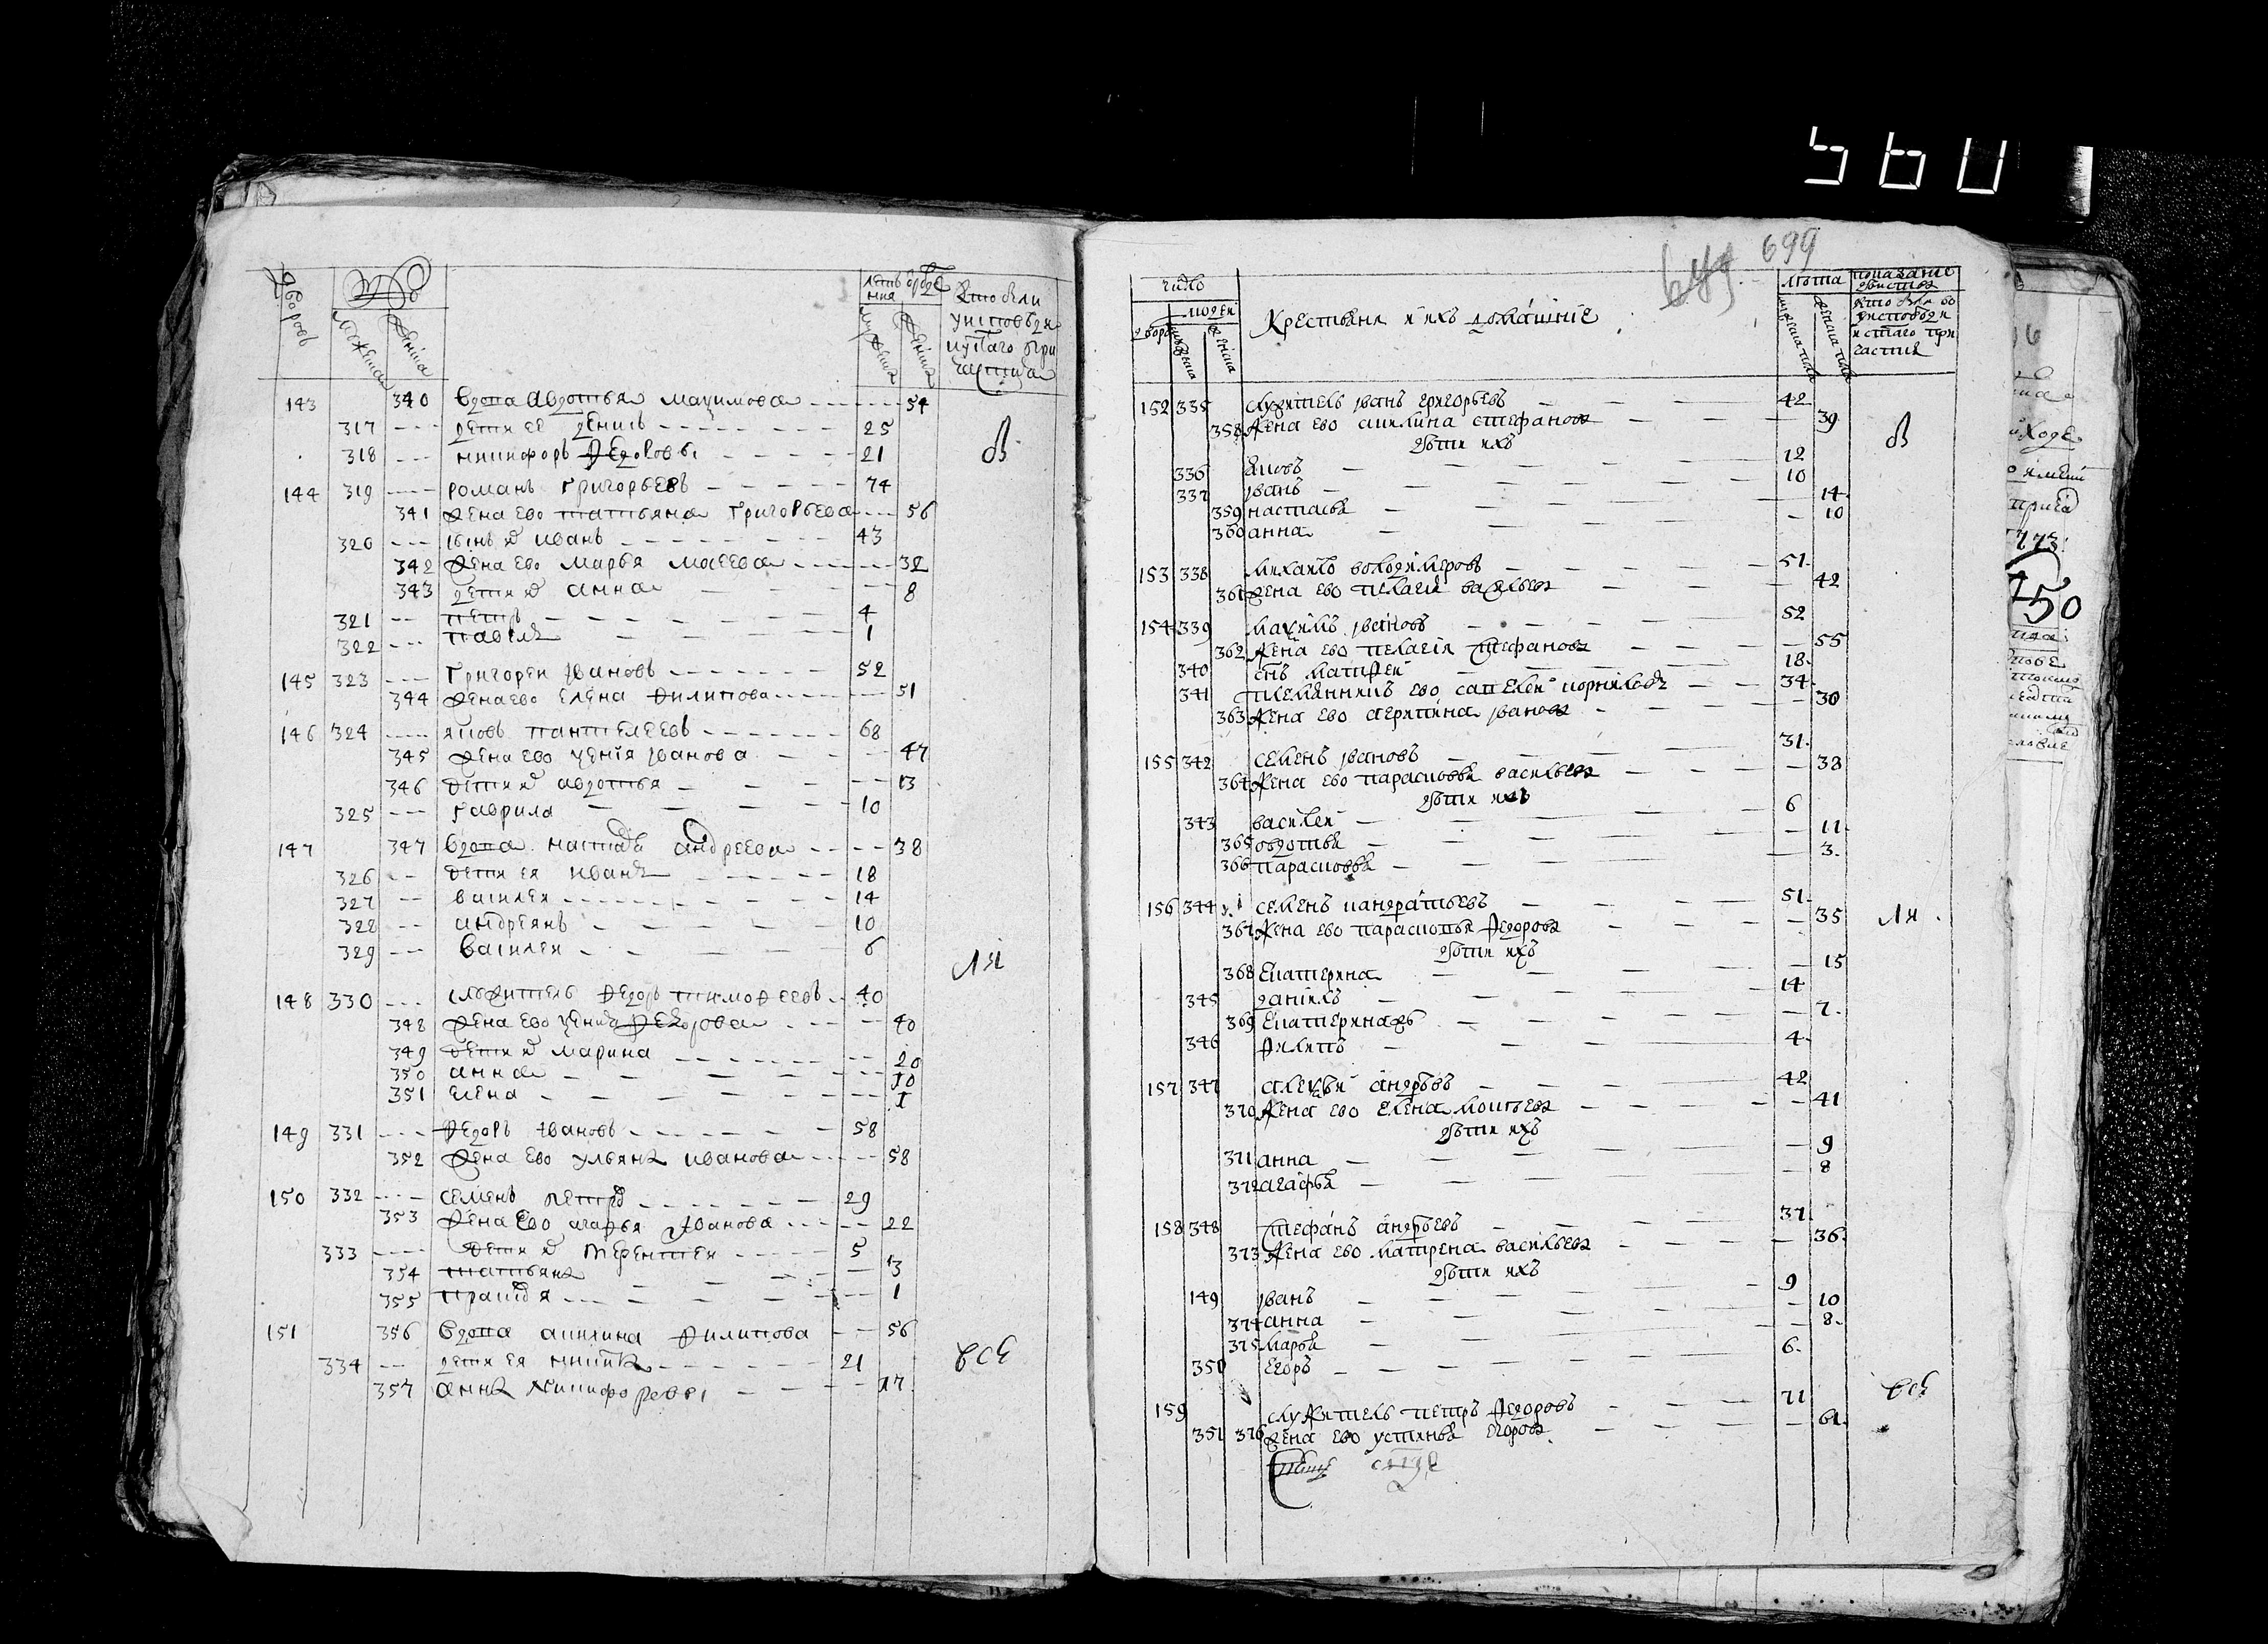 560
Дворовъ
Мужеска
Женска
Кто были
у исповеди
143 340 вдова авдотья мазимова 54
317 дети ее денисъ 25
318 никифоръ федоровы 21
144 319 романъ григорьевъ 74
341 жена ево татьяна григорьева 56
320 сынъ и иванъ 43
342 жена ево марья матвева 32
343 дети и анна 8
321 петръ 4
322 павелъ 1
145 323 григореи ивановъ 52
344 жена ево елена филипова 51
146 324 яковъ пантелеевъ 68
345 жена ево ксенія іванова 47
346 дети и авдотья 13
325 гаврила 10
147 347 вдова настасья андреева 38
326 дети ея иванъ 18
327 василеи 14
328 андреянъ 10
329 василеи 6
148 330 служитель федоръ тимофеевъ 40
348 жена ево ксенія федорова 40
349 дети и марина 20
350 анна 10
351 елена 1
149 331 федоръ ивановъ 58
352 жена ево ульяна иванова 58
150 332 семенъ петровъ 29
353 жена ево агафья іванова 22
333 дети и терентеи 5
354 татьяна 3
355 1
151 356 вдова акилина филипова 56
334 дети ея никита 21
357 анна никифоровы 17
в
ля
всѣ
699
число
людеи
Крестьяня и ихъ домашніе
лѣта
показание
кто былъ во
исповѣди
и стаго при
частия
152 335 служитель іванъ григорьевъ 42
358 жена ево акилина стефанова 39
дѣти ихъ
336 яковъ 12
337 іванъ 10
359 настасья 14
360 анна 10
153 338 михаилъ володимеровъ 51
361 жена ево пелагея васильева 42
154 339 максимъ івановъ 52
362 жена ево пелагія стефанова 55
340 снъ матфеи 18
341 племянникъ ево савелеи корниловъ 34
363 жена ево агрипина іванова 30
155 342 семенъ івановъ 31
364 жена ево парасковья васильева 38
дѣти ихъ
343 василеи 6
365 овдотья 11
366 парасковья 3
156 344 семенъ панкратьевъ 51
367 жена ево парасковья федорова 35
дѣти ихъ
368 екатерина 15
345 данилъ 14
369 екатерина 7
346 филипъ 4
157 347 алексѣи андрѣевъ 42
370 жена ево елена мокѣева 41
дѣти ихъ
371 анна 9
372 агафья 8
158 348 стефанъ андрѣевъ 37
373 жена ево матрена васильева 36
дѣти ихъ
149 іванъ 9
374 анна 10
375 марья 8
350 егоръ 6
159 служитель петръ федоровъ 71
351 376 жена ево устинья егорова 61
в
ля
всѣ